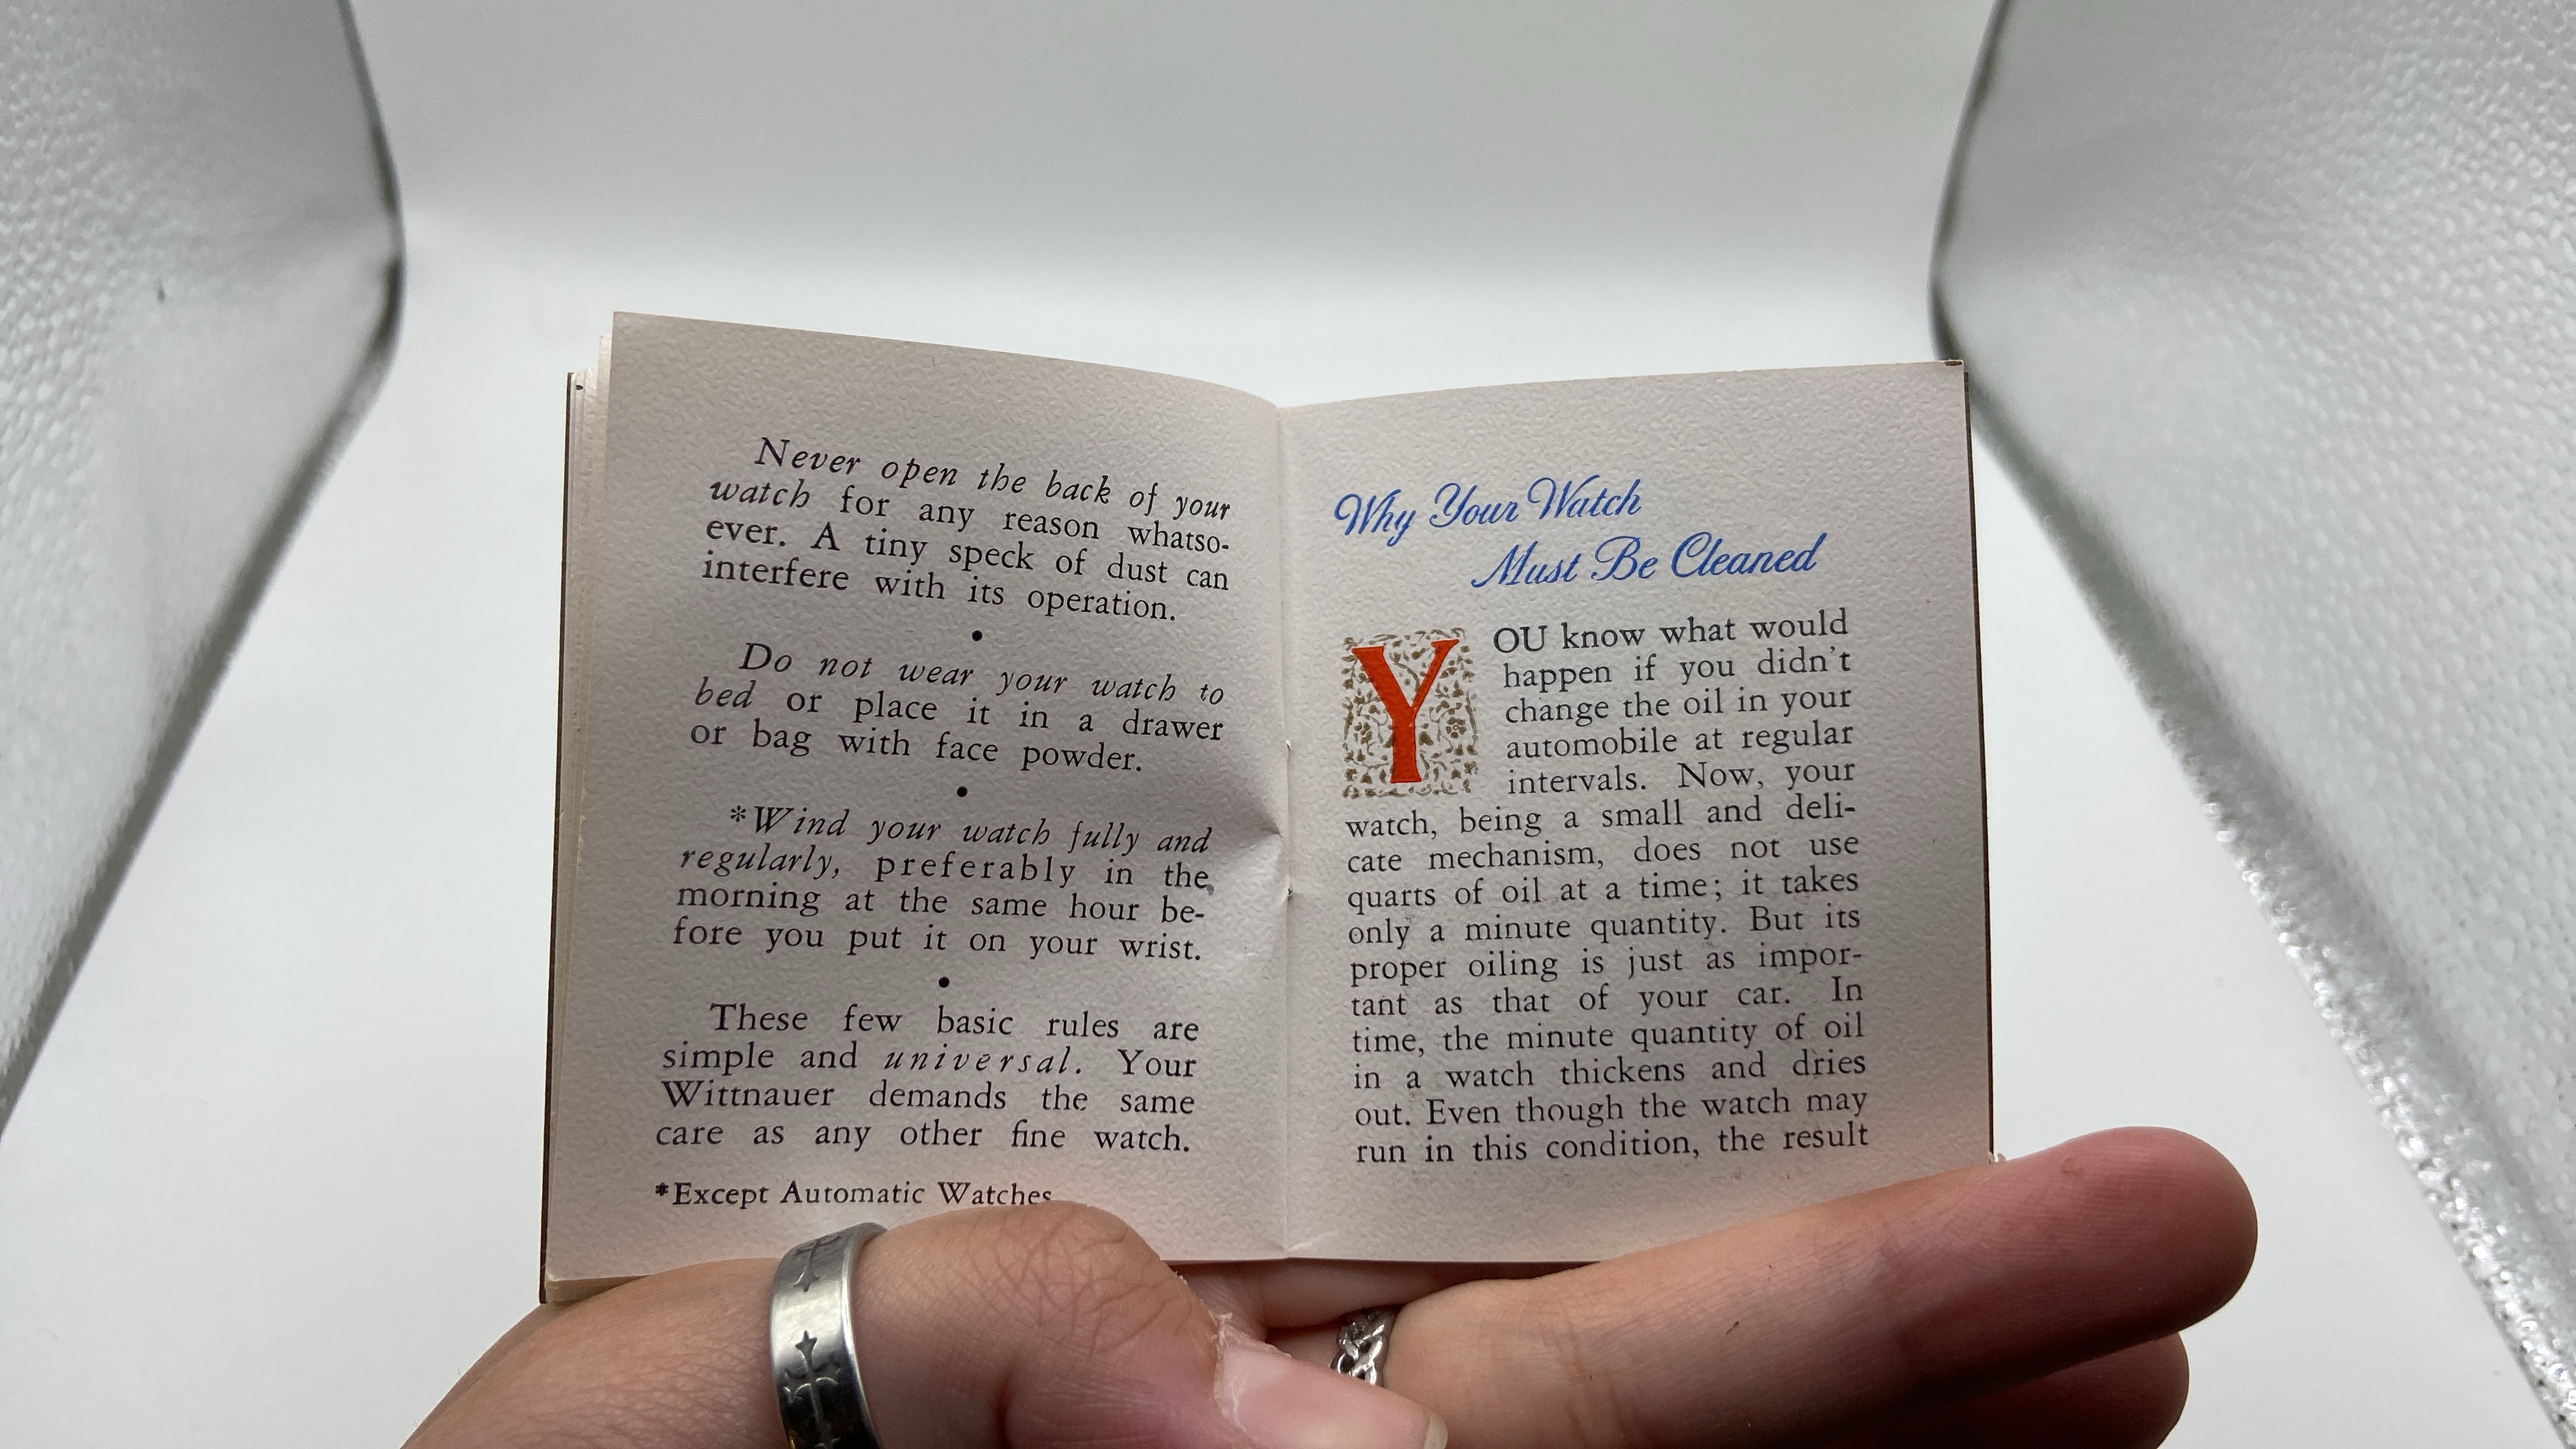 Never open the back of your
watch for any reason whatso-
ever. A tiny speck of dust can
interfere with its operation.
•
Do not wear your watch to
bed or place it in a drawer
or bag with face powder.
•
*Wind your watch fully and
regularly, preferably in the
morning at the same hour be-
fore you put it on your wrist.
•
These few basic rules are
simple and universal. Your
Wittnauer demands the same
care as any other fine watch.
*Except Automatic Watches
Why Your Watch
Must Be Cleaned
YOU know what would
happen if you didn't
change the oil in your
automobile at regular
intervals. Now, your
watch, being a small and deli-
cate mechanism, does not use
quarts of oil at a time; it takes
only a minute quantity. But its
proper oiling is just as impor-
tant as that of your car. In
time, the minute quantity of oil
in a watch thickens and dries
out. Even though the watch may
run in this condition, the result